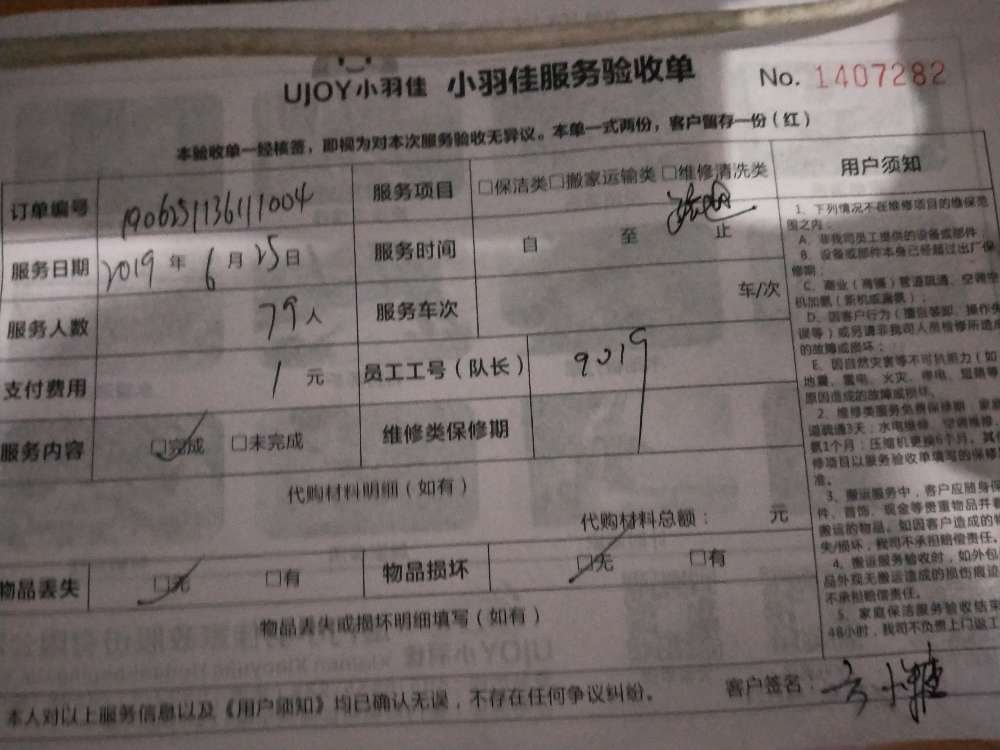 UJOY小羽佳 小羽佳服务验收单 No. 1407282
本验收单一经核签，即视为对本次服务验收无异议。本单一式两份，客户留存一份（红）
订单编号 190625113611004 服务项目 □保洁类□搬家运输类 □维修清洗类
服务日期 2019 年 6 月 25 日 服务时间 自 至 止
服务人数 79 人 服务车次 车/次
支付费用 1 元 员工工号（队长） 9019
服务内容 □完成 □未完成 维修类保修期
代购材料明细（如有）
代购材料总额： 元
物品丢失 □无 □有 物品损坏 □无 □有
物品丢失或损坏明细填写（如有）
本人对以上服务信息以及《用户须知》均已确认无误，不存在任何争议纠纷。 客户签名：
用户须知
1、下列情况不在维修项目的维保范
围之内：
A、非我司员工提供的设备或部件
B、设备或部件本身已经超过出厂保
修期；
C、商业（商铺）管道疏通、空调
机加氨（新机或漏氨）；
D、因客户行为（擅自装卸、操作失
误等）或另请非我司人员检修所造
的故障或损坏；
E、因自然灾害等不可抗能力（如
地震、雷电、火灾、停电、
原因造成的故障或损坏。
2、维修类服务免费保修期：家庭
道疏通3天；水电维修、空调维修、
氨1个月；压缩机更换6个月。其
修项目以服务验收单填写的保修
准。
3、搬运服务中，客户应随身保
件、首饰、现金等贵重物品并
搬运的物品。如因客户造成的
失/损坏，我司不承担赔偿责任。
4、搬运服务验收时，如外包
品外观无搬运造成的损伤痕迹
不承担赔偿责任。
5、家庭保洁服务验收结束
48小时，我司不负责上门返工